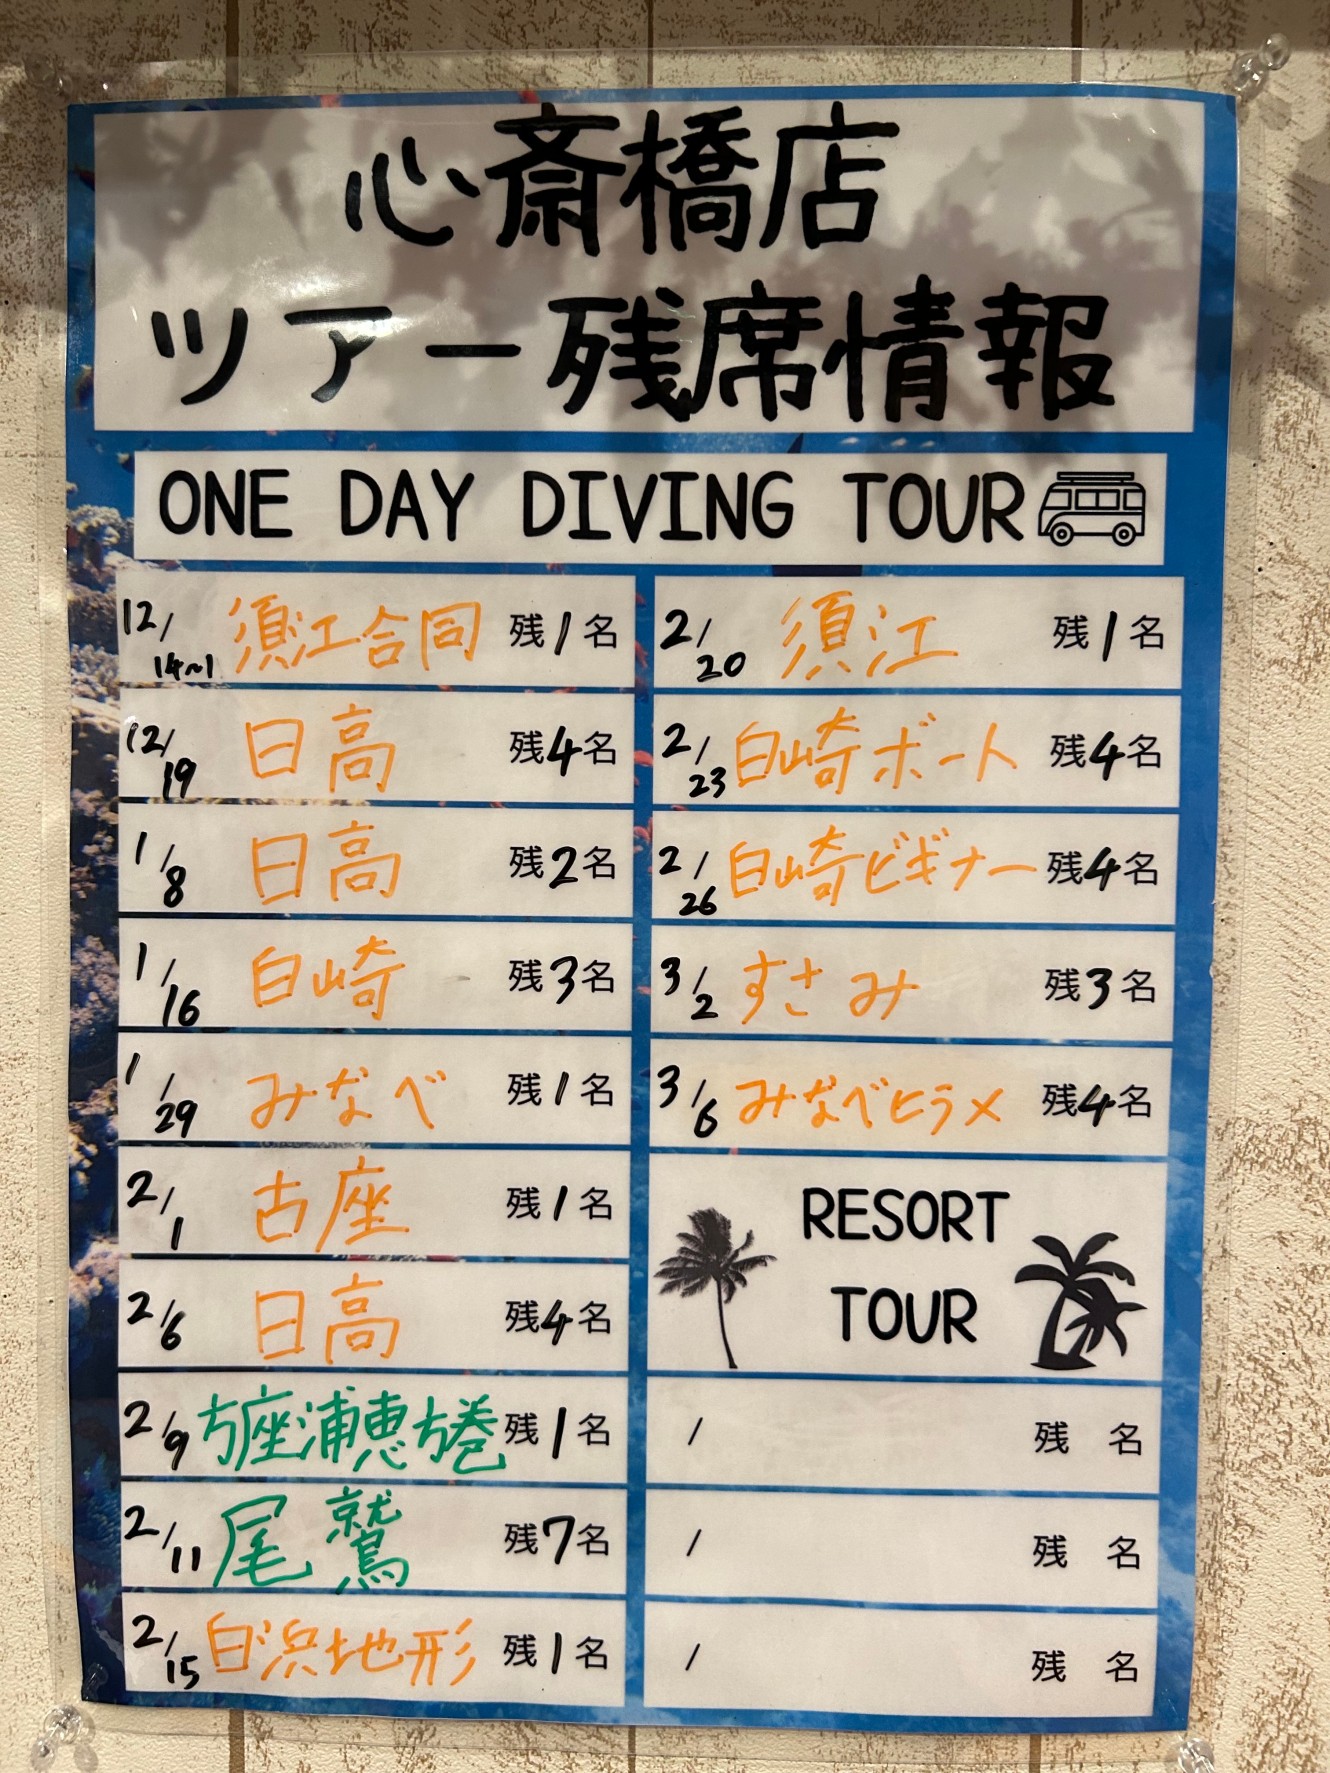 心斎橋店
ツアー残席情報
ONE DAY DIVING TOUR
12/14~1 須江合同 残1名
12/19 日高 残4名
1/8 日高 残2名
1/16 白崎 残3名
1/29 みなべ 残1名
2/1 古座 残1名
2/6 日高 残4名
2/9 古座浦恵方巻 残1名
2/11 尾鷲 残7名
2/15 白浜地形 残1名
2/20 須江 残1名
2/23 白崎ボート 残4名
2/26 白崎ビギナー 残4名
3/2 すさみ 残3名
3/6 みなべヒラメ 残4名
RESORT
TOUR
/ 残 名
/ 残 名
/ 残 名